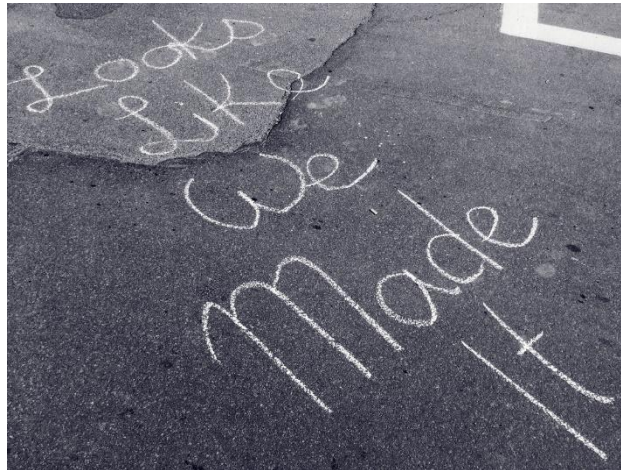 Looks
Like
We
Made
It